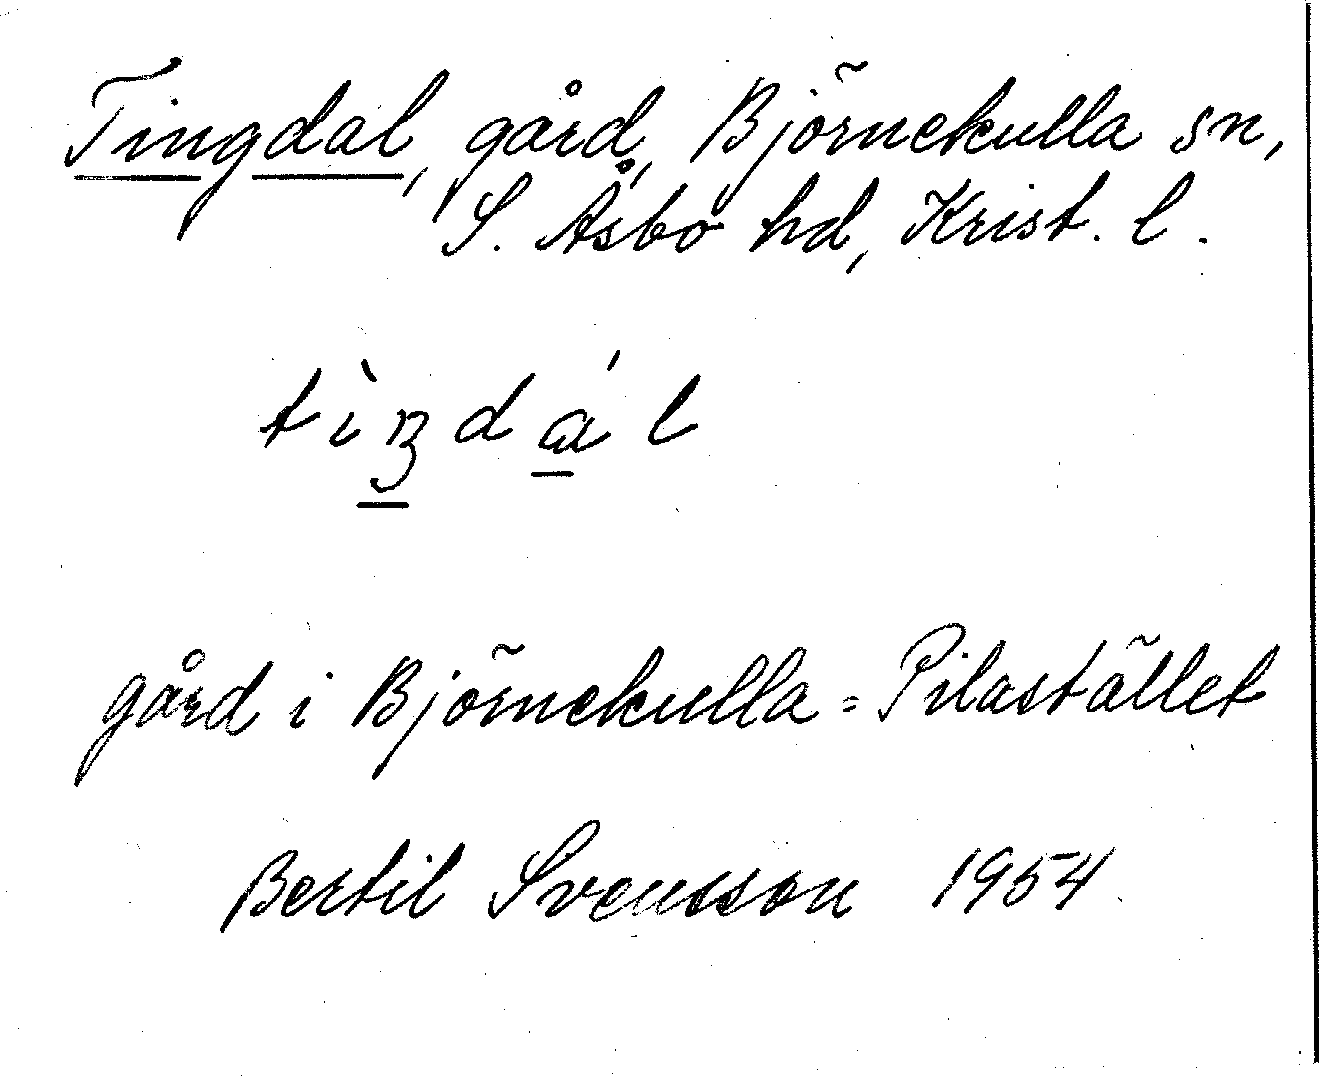 Tingdal, gård, Björnekulla sn,
S. Åsbo hd, Krist. l.
tìŋdál
gård i Björnekulla = Pilastället
Bertil Svensson 1954